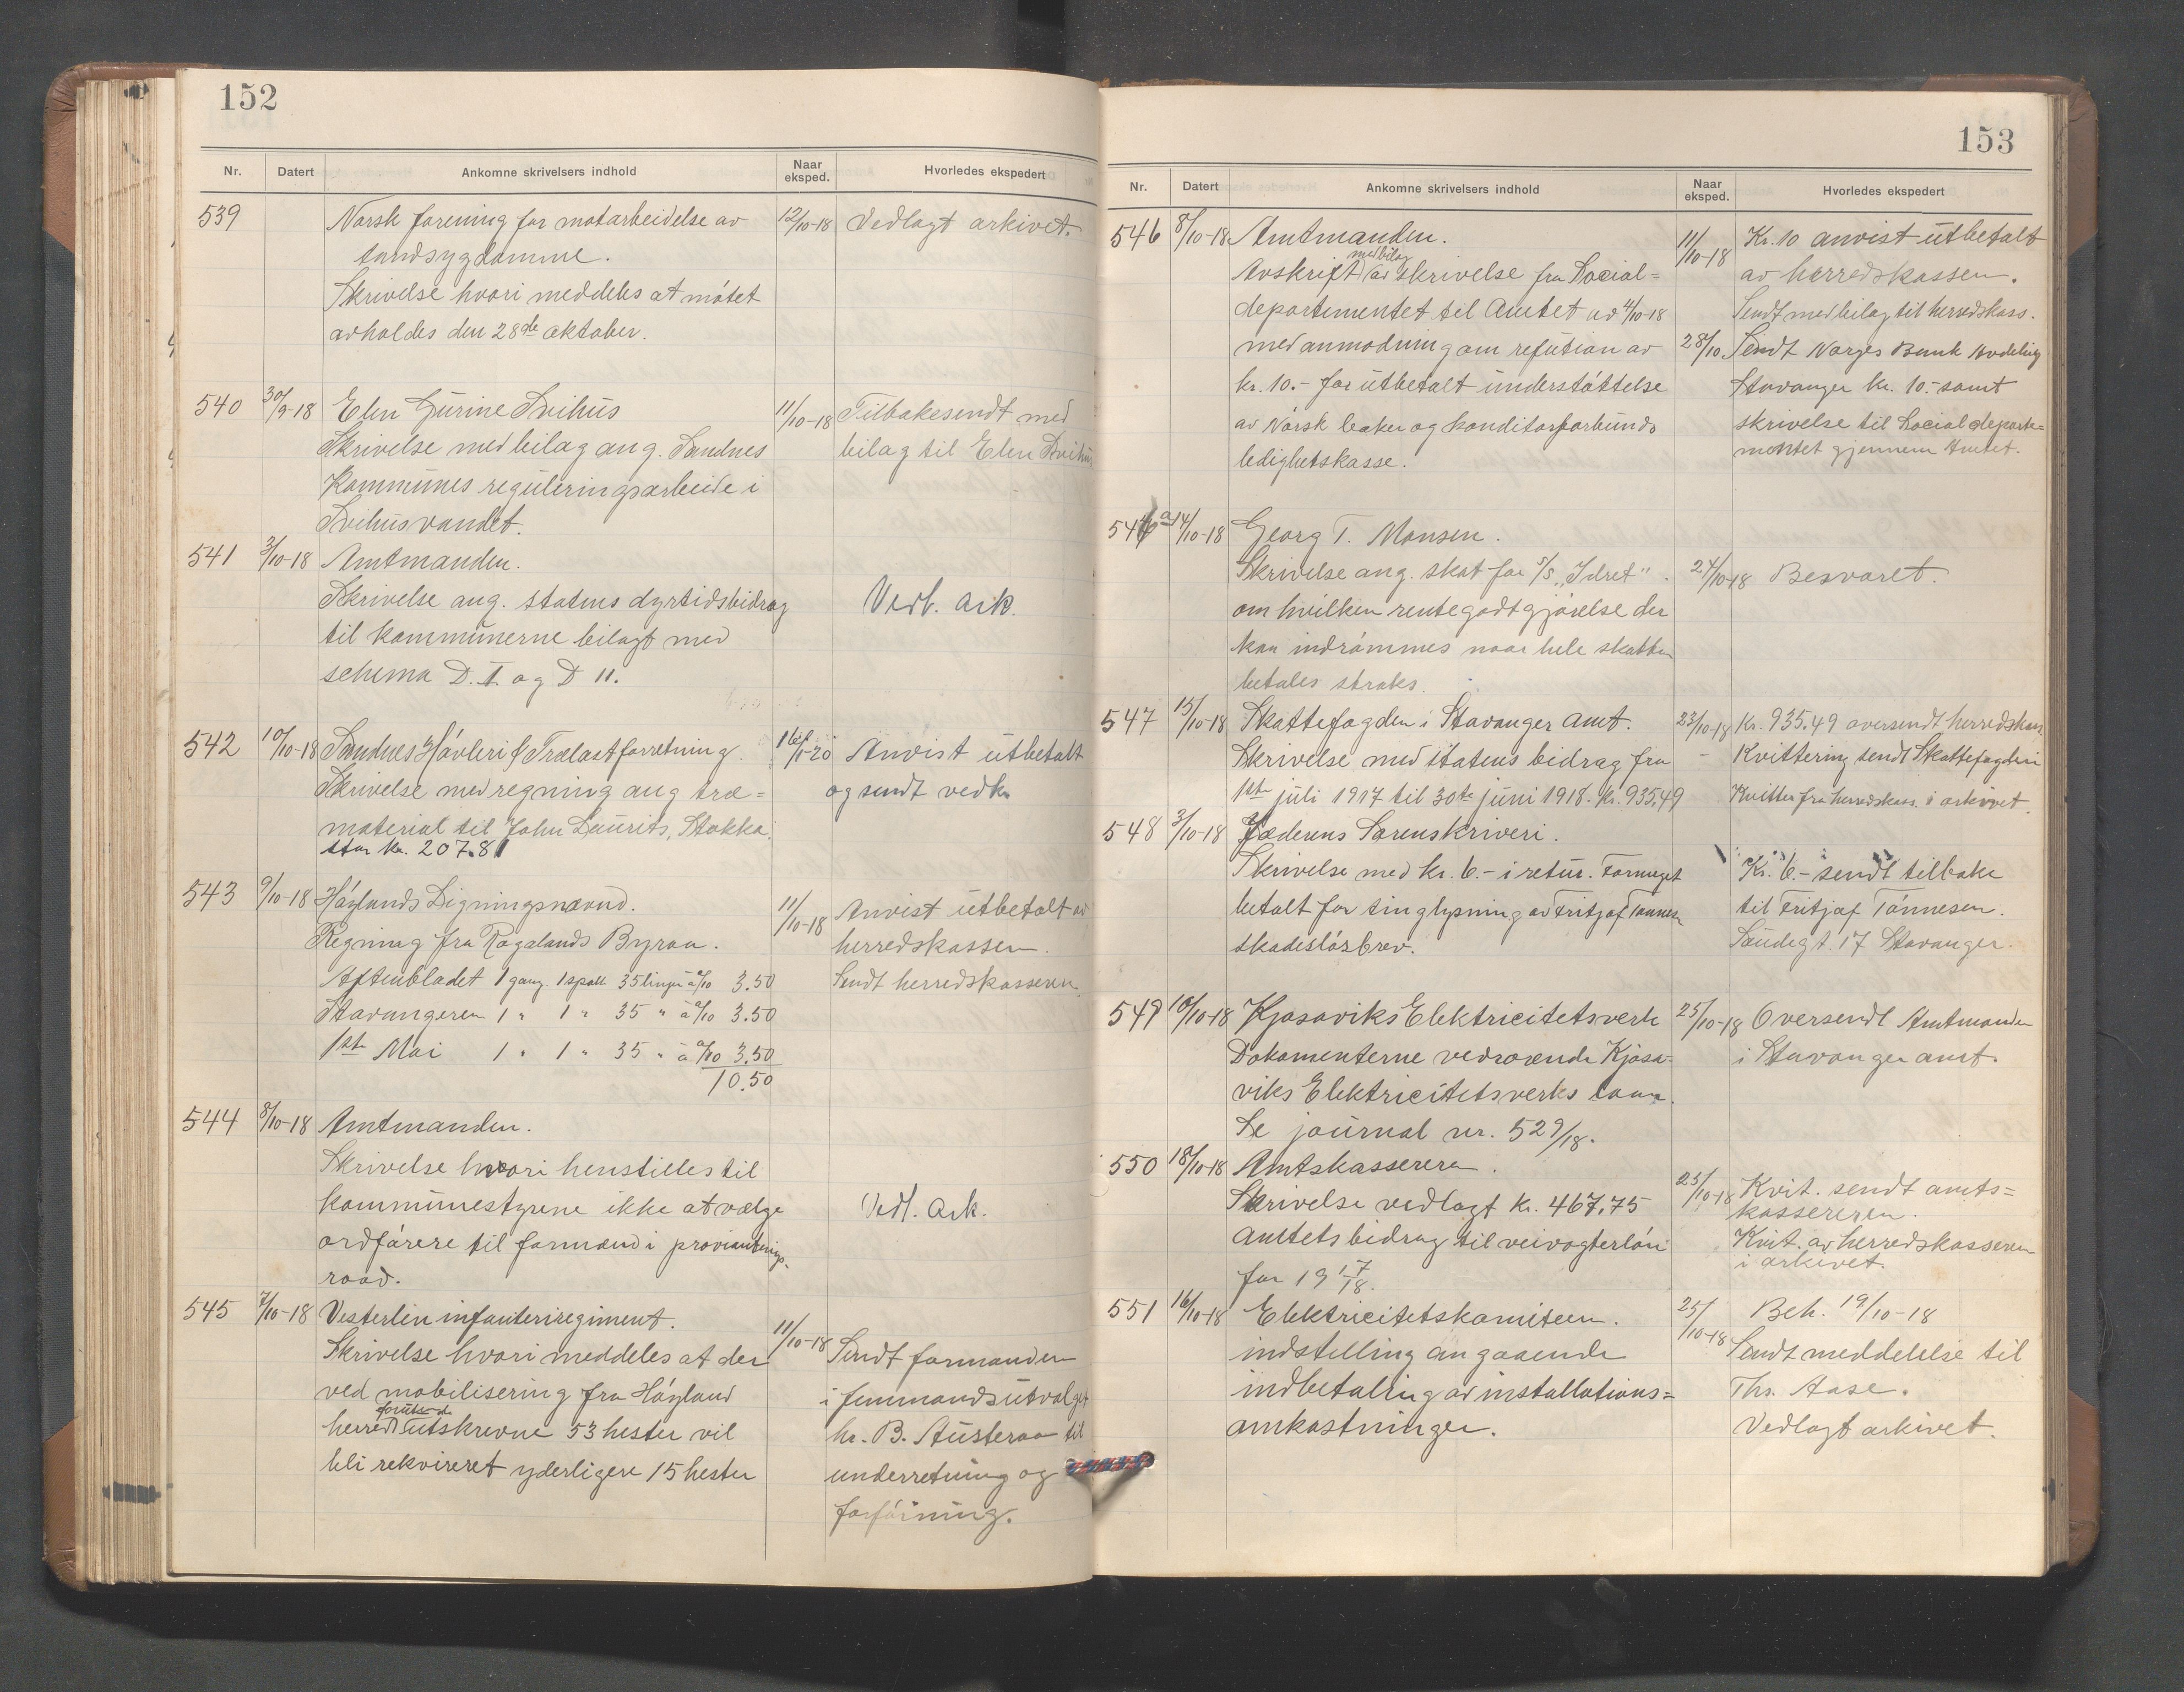 152
Nr. Datert Ankomne skrivelsers indhold Naar eksped. Hvorledes ekspedert
539 Norsk forening for motarbeidelse av 12/10-18 Vedlagt arkivet.
tandsygdomme.
Skrivelse hvori meddeles at møtet
avholdes den 28de oktober.
540 30/9-18 Elen Gurine Svihus 11/10-18 Tilbakesendt med
Skrivelse med bilag ang. Sandnes bilag til Elen Svihus
Kommunes reguleringsarbeide i
Svihusvandet.
541 3/10-18 Amtmanden.
Skrivelse ang. statens dyrtidsbidrag Vedl. Ark.
til kommunerne bilagt med
schema D. I. og D II.
542 10/10-18 Sandnes Høvleri & Trælastforretning. 16/1-20 Anvist utbetalt
Skrivelse med regning ang træ= og sendt vedk.
material til John Laurits, Stokka
stor kr. 207.81
543 9/10-18 Høylands Ligningsnævnd. 11/10-18 Anvist utbetalt av
Regning fra Rogalands Byraa. herredskassen.
Aftenbladet 1 gang. 1 spalt 35 linjer à 0/10 3.50 Sendt herredskasseren.
Stavangeren 1 " 1 " 35 " à 0/10 3.50
1ste Mai 1 " 1 " 35 " à 0/10 3.50
10.50
544 8/10-18 Amtmanden.
Skrivelse hvori henstilles til
kommunestyrene ikke at vælge Vedl. Ark.
ordførere til formænd i provianterings-
raad.
545 7/10-18 Vesterlen infanteriregiment.
Skrivelse hvori meddeles at der 11/10-18 Sendt formanden
ved mobilisering fra Høyland i femmandsutvalget
herred foruten de utskrevne 53 hester vil hr. B. Austeraa til
bli rekvireret yderligere 15 hester underretning og
forføining.
153
Nr. Datert Ankomne skrivelsers indhold Naar eksped. Hvorledes ekspedert
546 8/10-18 Amtmanden. 11/10-18 Kr. 10 anvist utbetalt
Avskrift med bilag av skrivelse fra Social= av herredskassen.
departementet til Amtet av 4/10-18 Sendt med bilag til herredskass.
med anmodning om refusion av 28/10. Sendt Norges Bank Avdeling
kr. 10.- for utbetalt understøttelse Stavanger kr. 10.- samt
av Norsk baker og konditorforbunds skrivelse til Socialdeparte=
ledighetskasse. mentet gjennem Amtet.
546 a 14/10-18 Georg T. Monsen.
Skrivelse ang. skat for s/s "Idret". 24/10-18 Besvaret.
om hvilken rentegodtgjørelse der
kan indrømmes naar hele skatten
betales straks.
547 15/10-18 Skattefogden i Stavanger amt. 23/10-18 Kr. 935.49 oversendt herredskass.
Skrivelse med statens bidrag fra - Kvittering sendt Skattefogden
1ste juli 1917 til 30te juni 1918. kr. 935.49 Kvitter. fra herredskass. i arkivet.
548 3/10-18 Jæderens Sorenskriveri.
Skrivelse med kr. 6.- i retur. Formeget Kr. 6.- sendt tilbake
betalt for tinglysning av Fritjof Tønnesen til Fritjof Tønnesen.
skadesløsbrev. Saudegt. 17 Stavanger.
549 10/10-18 Kjosaviks Elektricitetsverk 25/10-18 Oversendt Amtmanden
Dokumenterne vedrørende Kjosa= i Stavanger amt.
viks Elektricitetsverks laan.
Se journal nr. 529/18.
550 18/10-18 Amtskassereren.
Skrivelse vedlagt kr. 467.75 25/10-18 Kvit. sendt amts=
amtets bidrag til veivogterløn kassereren.
for 1917/18. Kvit. av herredskasseren
i arkivet.
551 16/10-18 Elektricitetskomiteen. 25/10-18 Beh. 19/10-18
indstilling angaaende Sendt meddelelse til
indbetaling av installations= Ths. Aase.
omkostninger. Vedlagt arkivet.